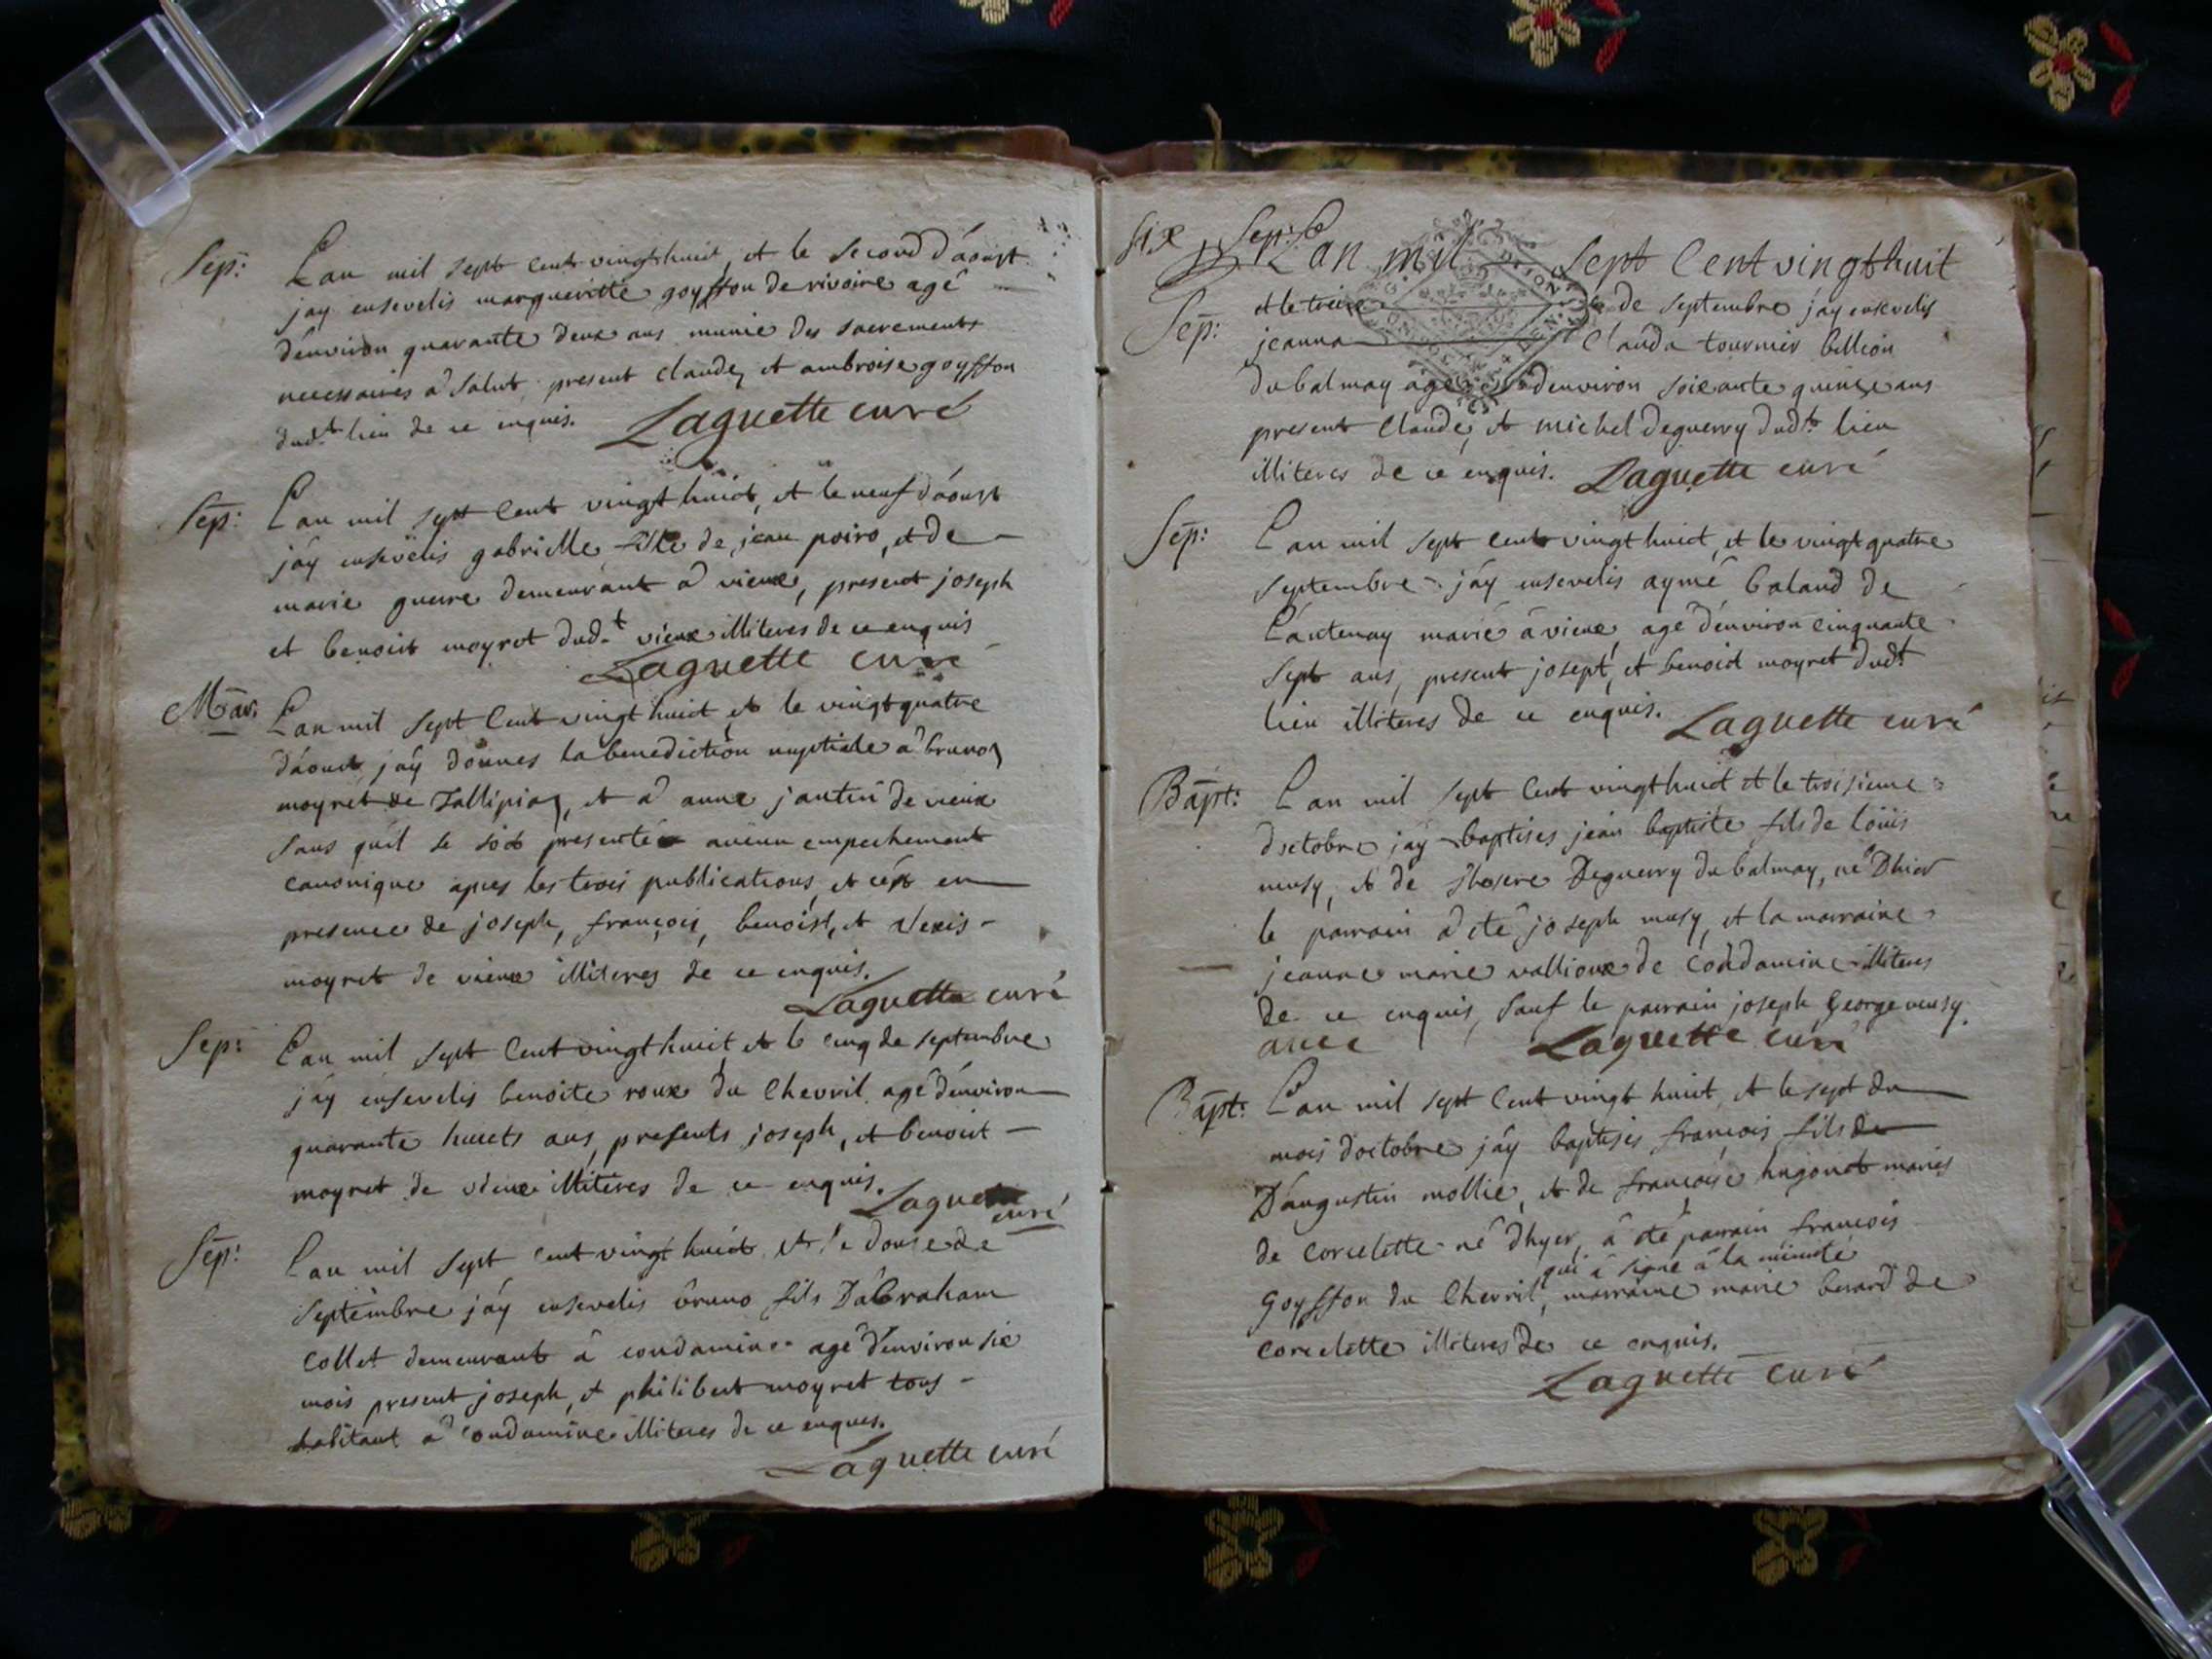 Sep: L'an mil sept cent vingt huit, et le second d'aoust
jay ensevelis margueritte goyffon de rivoire agé
d'environ quarante deux ans munie des sacrements
necessaires a salut, present claude, et ambroise goyffon
dudt lieu de ce enquis. Laguette curé
Sep: L'an mil sept cent vingt huict, et le neuf d'aoust
jáy ensevelis gabrielle fille de jean poiro, et de
marie guerre demeurant a vieux, present joseph
et benoit moyret dud.t vieux illiteres de ce enquis
Laguette curé
Mar: L'an mil sept cent vingt huict et le vingt quatre
d'aoust jáy donnes la benediction nuptiale a bruno
moyret de, et a anne jantin de vieux
sans quil se soit presenté aucun empechement
canonique apres les trois publications, et ce en
presence de joseph, françois, benoist, et Alexis
moyret de vieux illiteres de ce enquis.
Laguette curé
Sep: L'an mil sept cent vingt huict et le cinq de septembre
jáy ensevelis benoite roux du Chevril agé d'environ
quarante huicts ans, presents joseph, et benoit
moyret de vieux illiteres de ce enquis. Laguette
curé
Sep: L'an mil sept cent vingt huict et le douse de
septembre jáy ensevelis bruno fils D'abraham
Collet demeurant a condamine agé d'environ six
mois present joseph, et philibert moyret tous
habitant a condamine illiteres de ce enques.
Laguette curé
six Sep: L'an mil sept cent vingt huit
Sep: et le treize de septembre jáy ensevelis
jeanne Clauda tournier billion
du balmay agé d'environ soixante quinze ans
present claude, et michel deguerry dudt lieu
illiteres de ce enquis. Laguette curé
Sep: L'an mil sept cent vingt huict, et le vingt quatre
septembre jáy ensevelis aymé baland de
Lantenay marié a vieux, agé d'environ cinquante
sept ans, present josept, et benoid moyret dudt
lieu illiteres de ce enquis. Laguette curé
Bapt: L'an mil sept cent vingt huict et le troisieme
doctobre jáy baptises jean baptiste fils de loüis
musy, et de Deguerry du balmay, né D'hier
le parrain a ete joseph musy, et la marraine
jeanne marie vallioux de Condamine illiteres
de ce enquis, sauf le parrain joseph George musy
avec Laguette curé
Bapt: L'an mil sept cent vingt huict, et le sept du
mois d'octobre jáy baptises françois fils de
D'augustin mollie, et de françoise hugonet mariés
de corcelette né d'hyer, a ete parrain françois
qui a signé a la minute
goyffon du Chevril, marraine marie berard de
corcelette illiteres de ce enquis.
Laguette curé